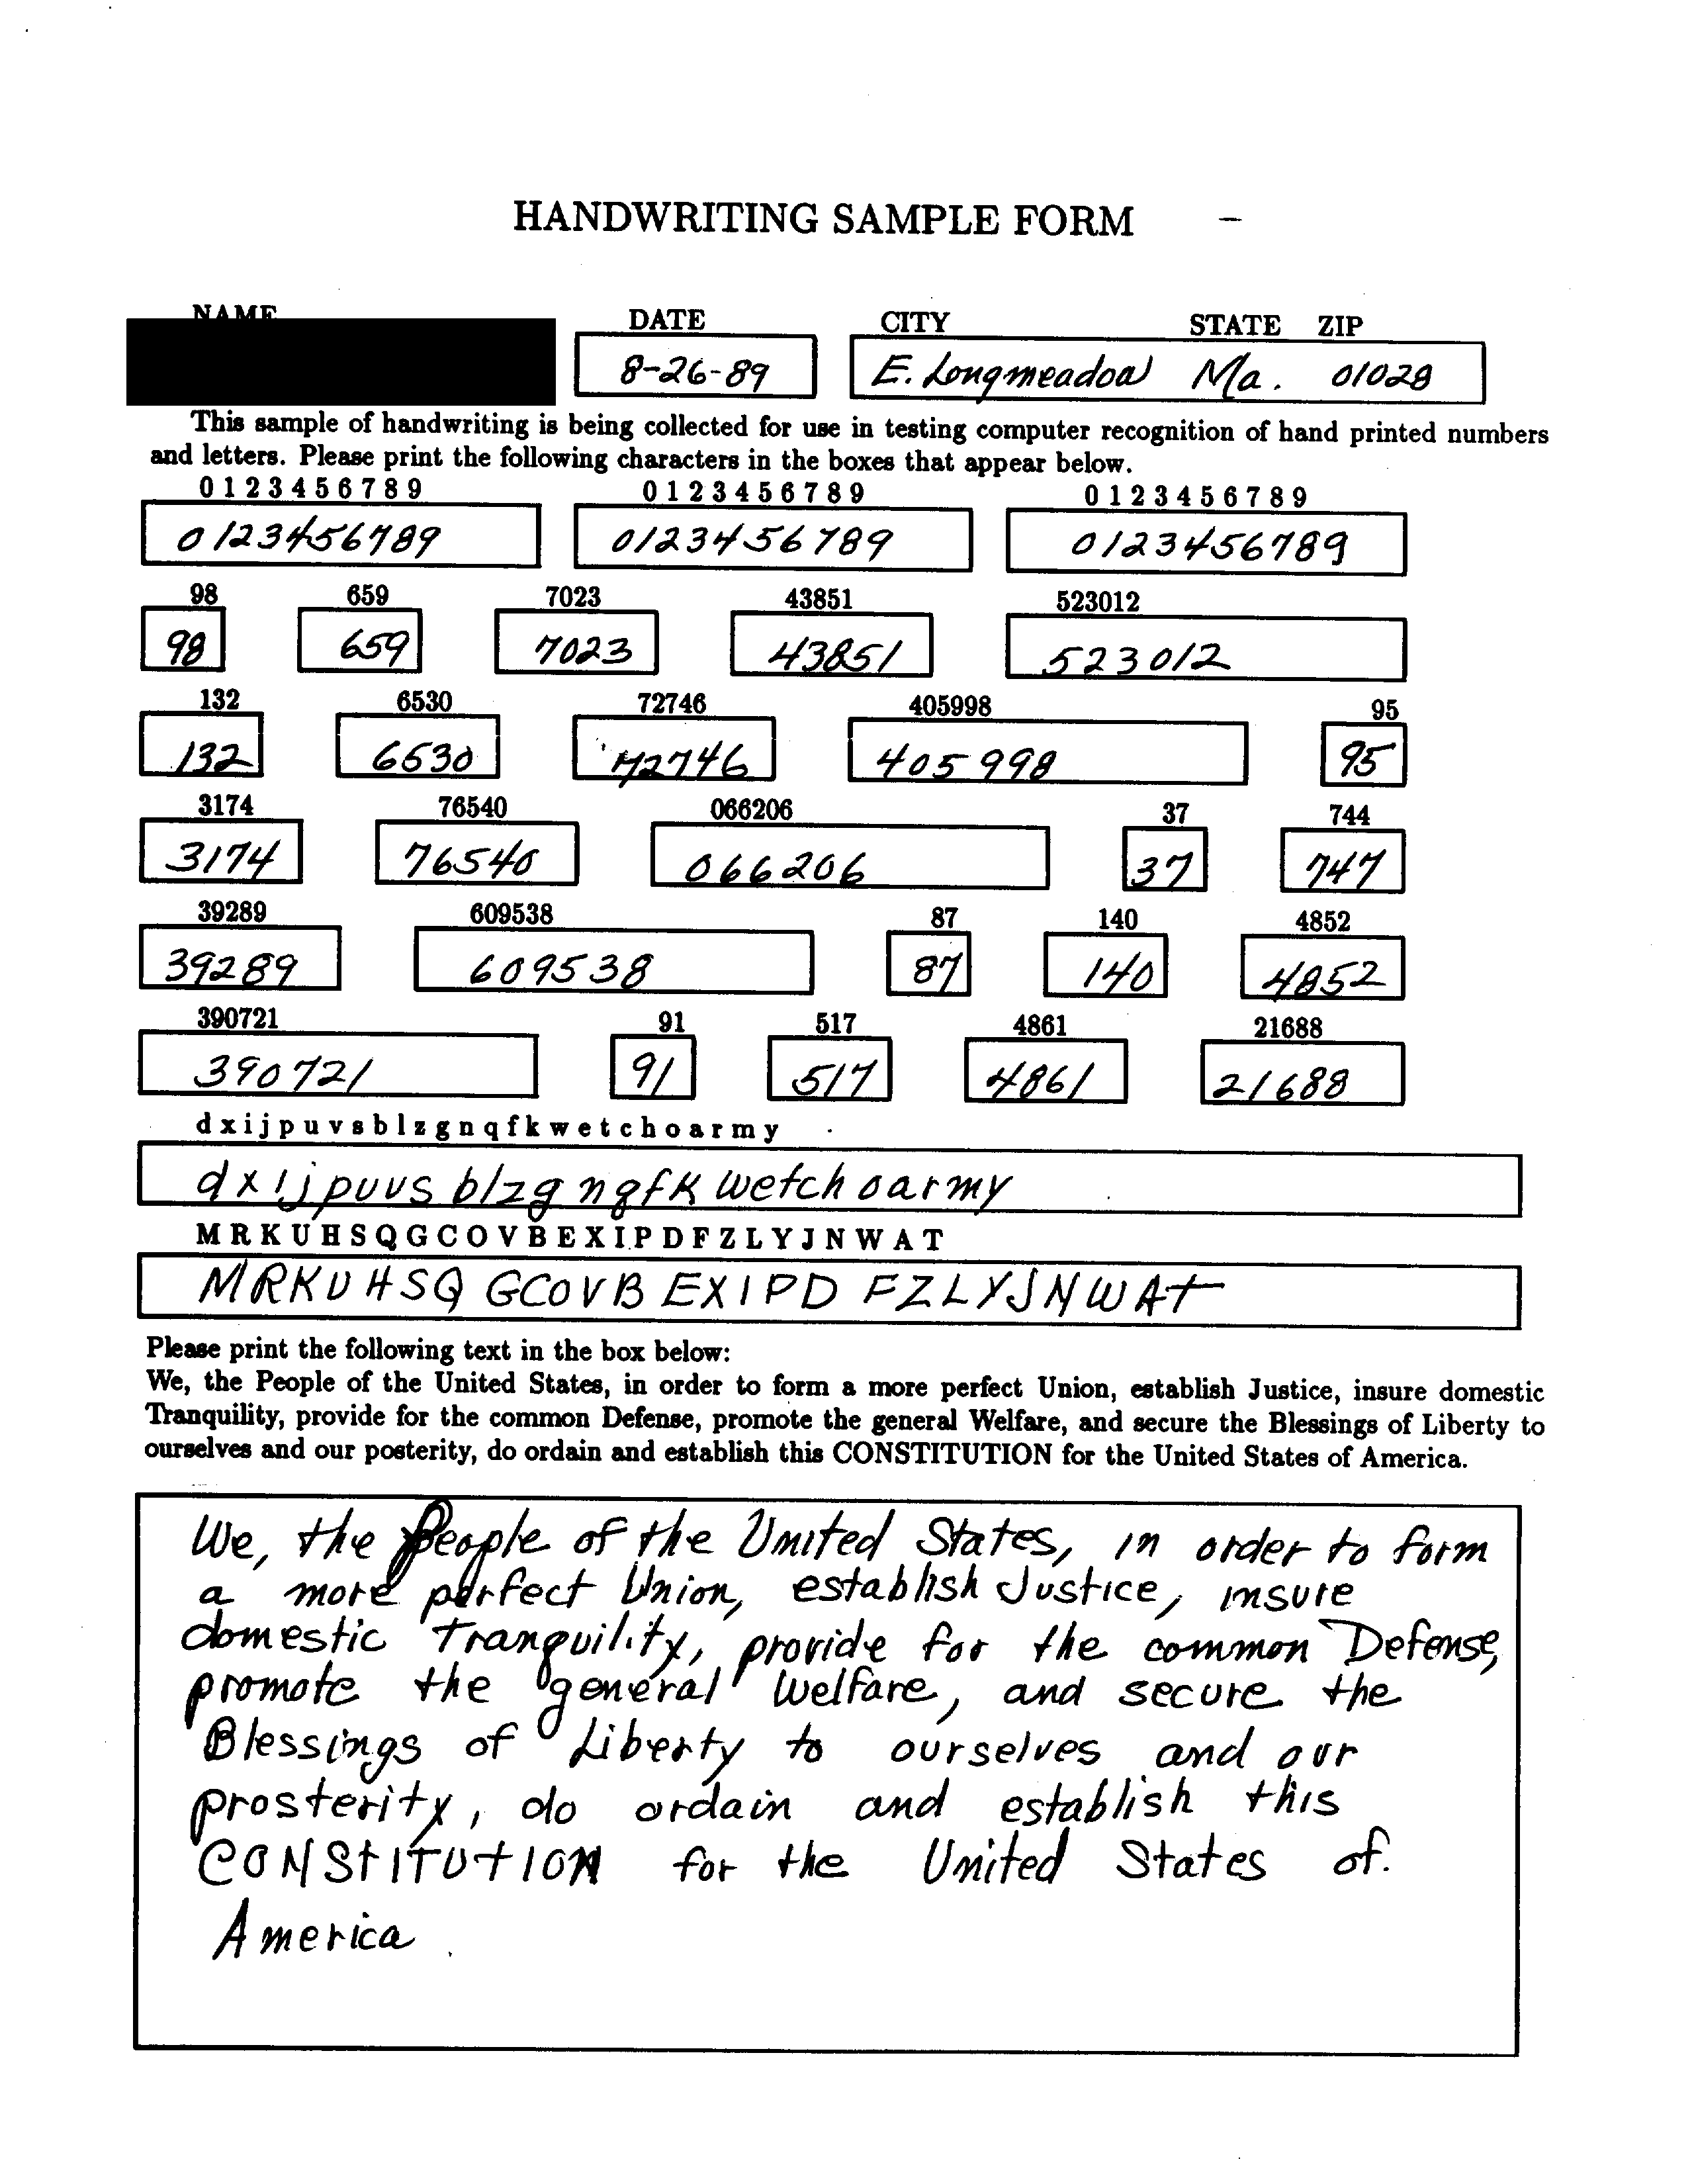 HANDWRITING SAMPLE FORM
NAME DATE CITY STATE ZIP
8-26-89 E. Longmeadow Ma. 01028
This sample of handwriting is being collected for use in testing computer recognition of hand printed numbers
and letters. Please print the following characters in the boxes that appear below.
0 1 2 3 4 5 6 7 8 9 0 1 2 3 4 5 6 7 8 9 0 1 2 3 4 5 6 7 8 9
0123456789 0123456789 0123456789
98 659 7023 43851 523012
98 659 7023 43851 523012
132 6530 72746 405998 95
132 6530 72746 405998 95
3174 76540 066206 37 744
3174 76540 066206 37 747
39289 609538 87 140 4852
39289 609538 87 140 4852
390721 91 517 4861 21688
390721 91 517 4861 21688
d x i j p u v s b l z g n q f k w e t c h o a r m y
dxijpuvs blzg nqfk wetch oarmy
M R K U H S Q G C O V B E X I P D F Z L Y J N W A T
MRKUHSQ GCOVB EXIPD FZLYJNWAT
Please print the following text in the box below:
We, the People of the United States, in order to form a more perfect Union, establish Justice, insure domestic
Tranquility, provide for the common Defense, promote the general Welfare, and secure the Blessings of Liberty to
ourselves and our posterity, do ordain and establish this CONSTITUTION for the United States of America.
We, the People of the United States, in order to form
a more perfect Union, establish Justice, insure
domestic Tranquility, provide for the common Defense,
promote the general Welfare, and secure the
Blessings of Liberty to ourselves and our
prosterity, do ordain and establish this
CONSTITUTION for the United States of.
America.